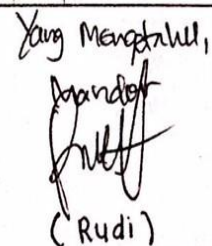 Yang Mengetahui,
Mandor
( Rudi )